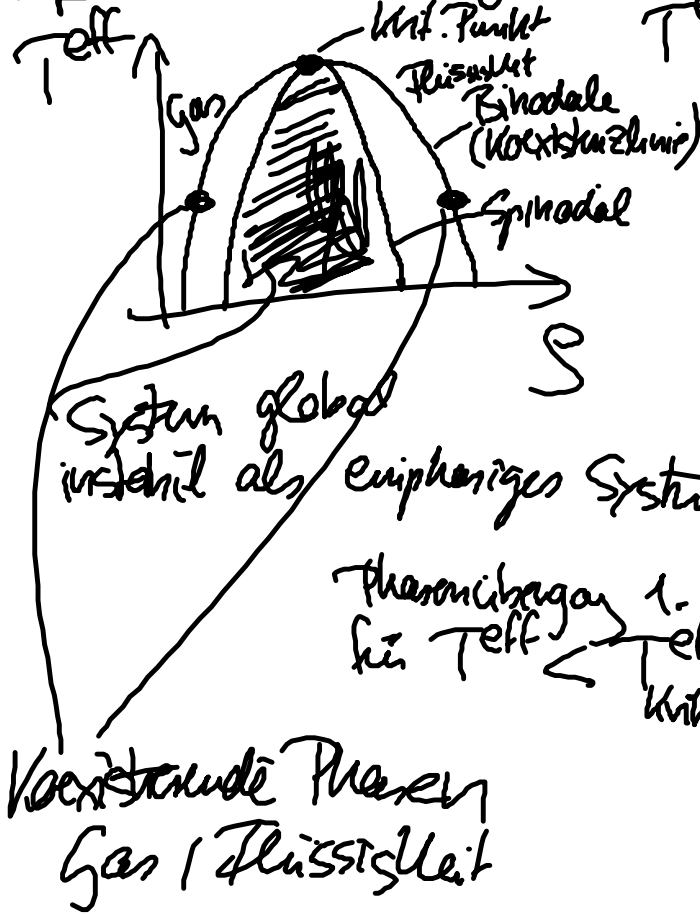 T eff
krit. Punkt
T
Gas
Flüssigkeit
Binodale
(Koexistenzlinie)
Spinodal
ρ
System global
instabil als einphasiges System
Phasenübergang 1.
für T eff < T eff
krit
Koexistierende Phasen
Gas / Flüssigkeit